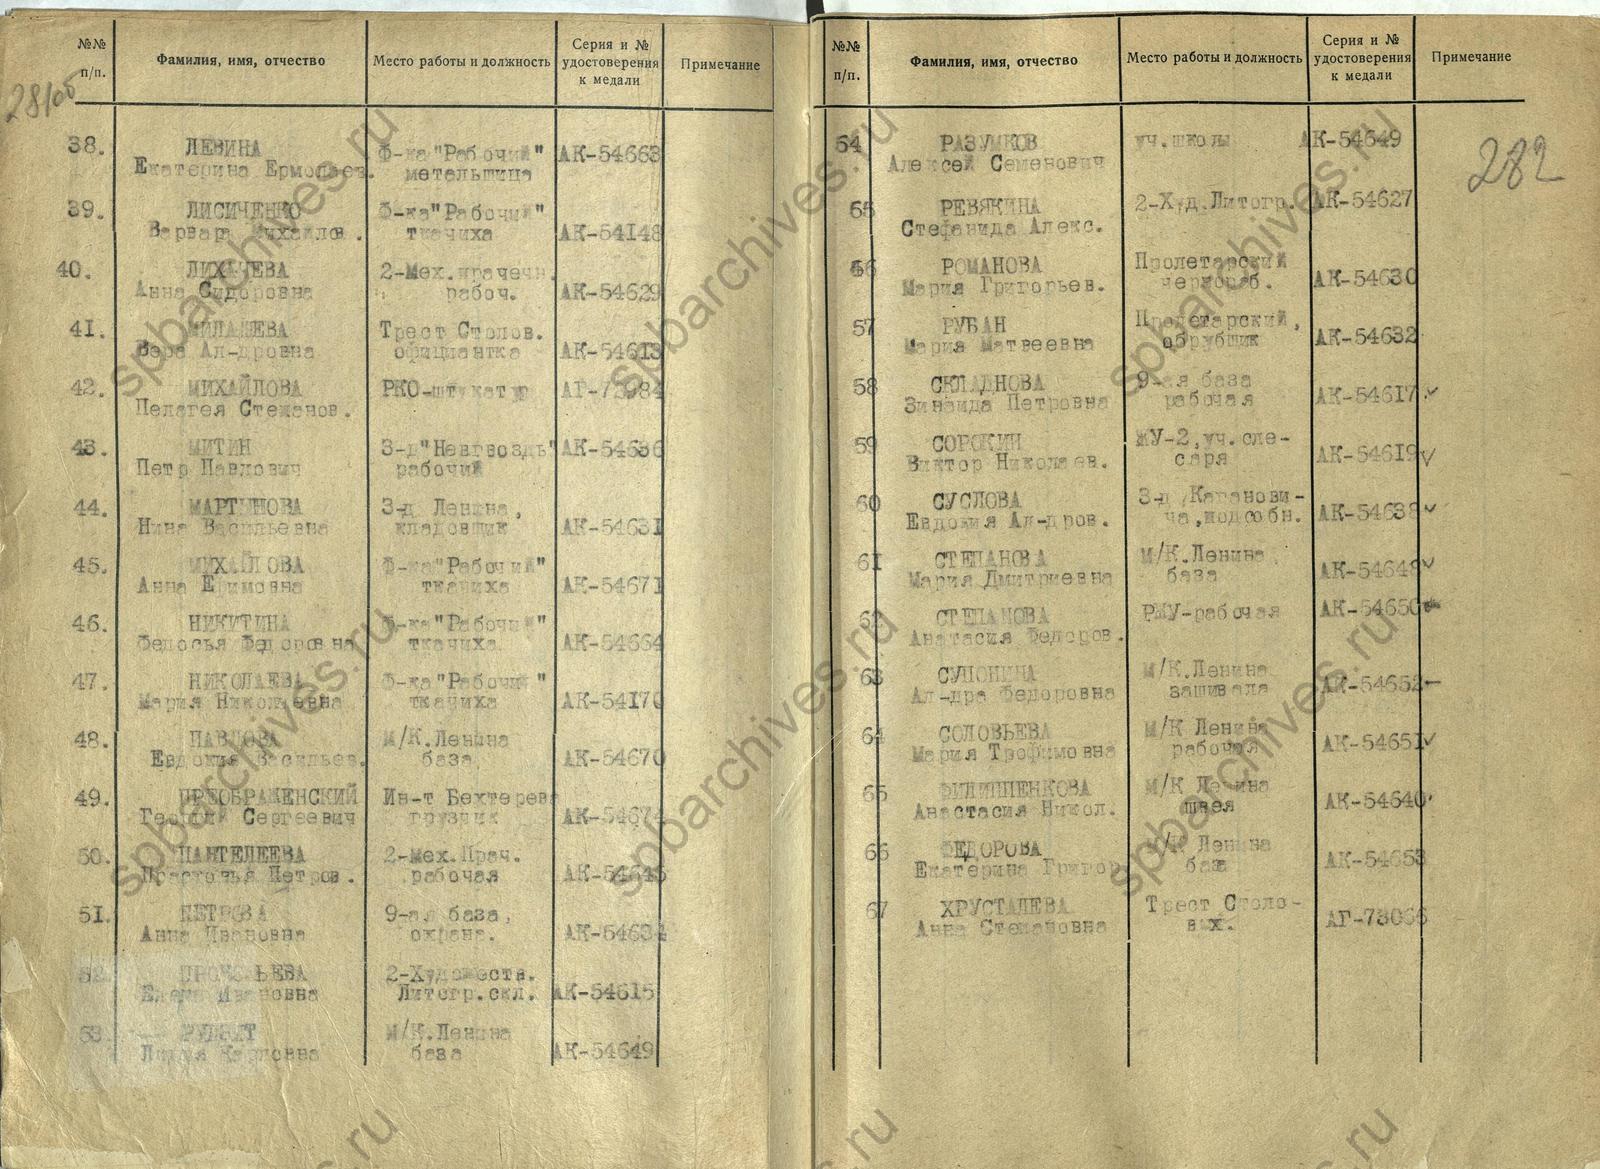 №№ п/п.
Фамилия, имя, отчество
Место работы и должность
Серия и № удостоверения к медали
Примечание
38. ЛЕВИНА Ф-ка "Рабочий" АК-54663
Екатерина Ермолаев. метальщица
39. ЛИСИЧЕНКО Ф-ка "Рабочий"
Варвара Михайлов. ткачиха АК-54148
40. ЛИХАЧЕВА 2-Мех.прачечн.
Анна Сидоровна рабоч. АК-54629
41. МИЛАШЕВА Трест Столов.
Вера Ал-дровна официантка АК-54613
42. МИХАЙЛОВА РКО-штукатур
Пелагея Степанов.
43. МИТИН З-д "Невгвоздь" АК-54636
Петр Павлович рабочий
44. МАРТЫНОВА З-д Ленина,
Нина Васильевна кладовщик АК-54631
45. МИХАЙЛОВА Ф-ка "Рабочий"
Анна Ефимовна ткачиха АК-54671
46. НИКИТИНА Ф-ка "Рабочий"
Федосья Федоровна ткачиха АК-54664
47. НИКОЛАЕВА Ф-ка "Рабочий"
Мария Николаевна ткачиха АК-54170
48. ПАВЛОВА М/К.Ленина
Евдокия Васильев. база АК-54670
49. ПРЕОБРАЖЕНСКИЙ Ин-т Бехтерева
Георгий Сергеевич грузчик АК-54674
50. ПАНТЕЛЕЕВА 2-Мех.Прач.
Петров. рабочая
51. ПЕТРОВА 9-ая база,
Анна Ивановна охрана. АК-54634
52. ПРОКОФЬЕВА 2-Художеств.
Елена Ивановна Литогр.скл. АК-54615
53. М/К.Ленина
Лидия Карловна база АК-54649
28/об
№№ п/п.
Фамилия, имя, отчество
Место работы и должность
Серия и № удостоверения к медали
Примечание
282
54 РАЗУМКОВ уч.школы АК-54649
Алексей Семенович
55 РЕВЯКИНА 2-Худ.Литогр. АК-54627
Стефанида Алекс.
56 РОМАНОВА Пролетарский
Мария Григорьев. чернораб. АК-54630
57 РУБАН Пролетарский,
Мария Матвеевна обрубщик АК-54632
58 СКЛАДНОВА 9-ая база
Зинаида Петровна рабочая АК-54617
59 СОРОКИН ЖУ-2,уч.сле-
Виктор Николаев. саря АК-54619
60 СУСЛОВА З-д Каганови-
Евдокия Ал-дров. ча,подсобн. АК-54638
61 СТЕПАНОВА М/К.Ленина
Мария Дмитриевна база АК-54648
62 СТЕПАНОВА РЖУ-рабочая АК-54650
Анатасия Федоров.
63 СУПОНИНА М/К.Ленина
Ал-дра Федоровна зашивала АК-54652
64 СОЛОВЬЕВА М/К Ленина
Мария Трофимовна рабочая АК-54651
65 ФИЛИППЕНКОВА М/К Ленина
Анастасия Никол. швея АК-54640
66 ФЕДОРОВА М/К Ленина
Екатерина Григор база АК-54653
67 ХРУСТАЛЕВА Трест Столо-
Анна Степановна вых. АГ-73066
spbarchives.ru